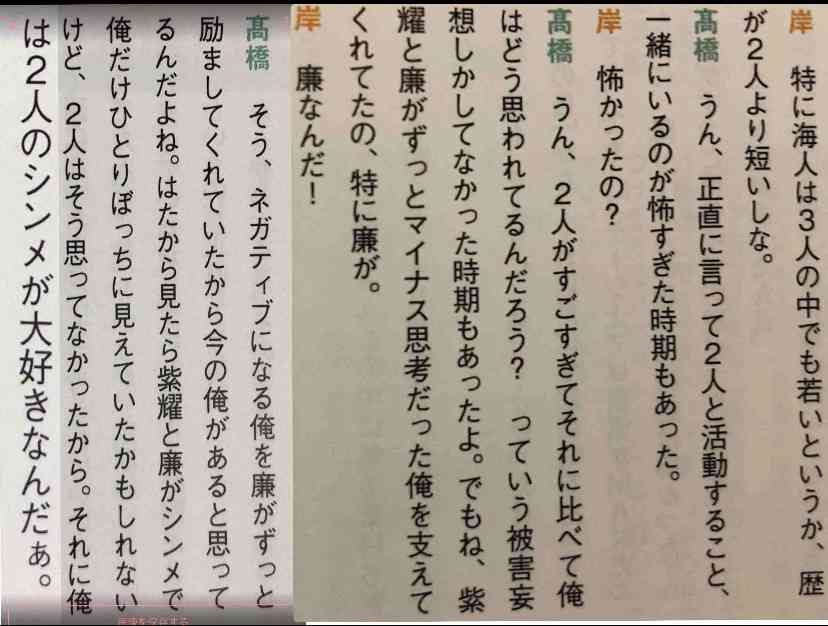 岸　特に海人は3人の中でも若いというか、歴
が2人より短いしな。
髙橋　うん、正直に言って2人と活動すること、
一緒にいるのが怖すぎた時期もあった。
岸　怖かったの？
髙橋　うん、2人がすごすぎてそれに比べて俺
はどう思われてるんだろう？　っていう被害妄
想しかしてなかった時期もあったよ。でもね、紫
耀と廉がずっとマイナス思考だった俺を支えて
くれてたの、特に廉が。
岸　廉なんだ！
髙橋　そう、ネガティブになる俺を廉がずっと
励ましてくれていたから今の俺があると思って
るんだよね。はたから見たら紫耀と廉がシンメで
俺だけひとりぼっちに見えていたかもしれない
けど、2人はそう思ってなかったから。それに俺
は2人のシンメが大好きなんだぁ。